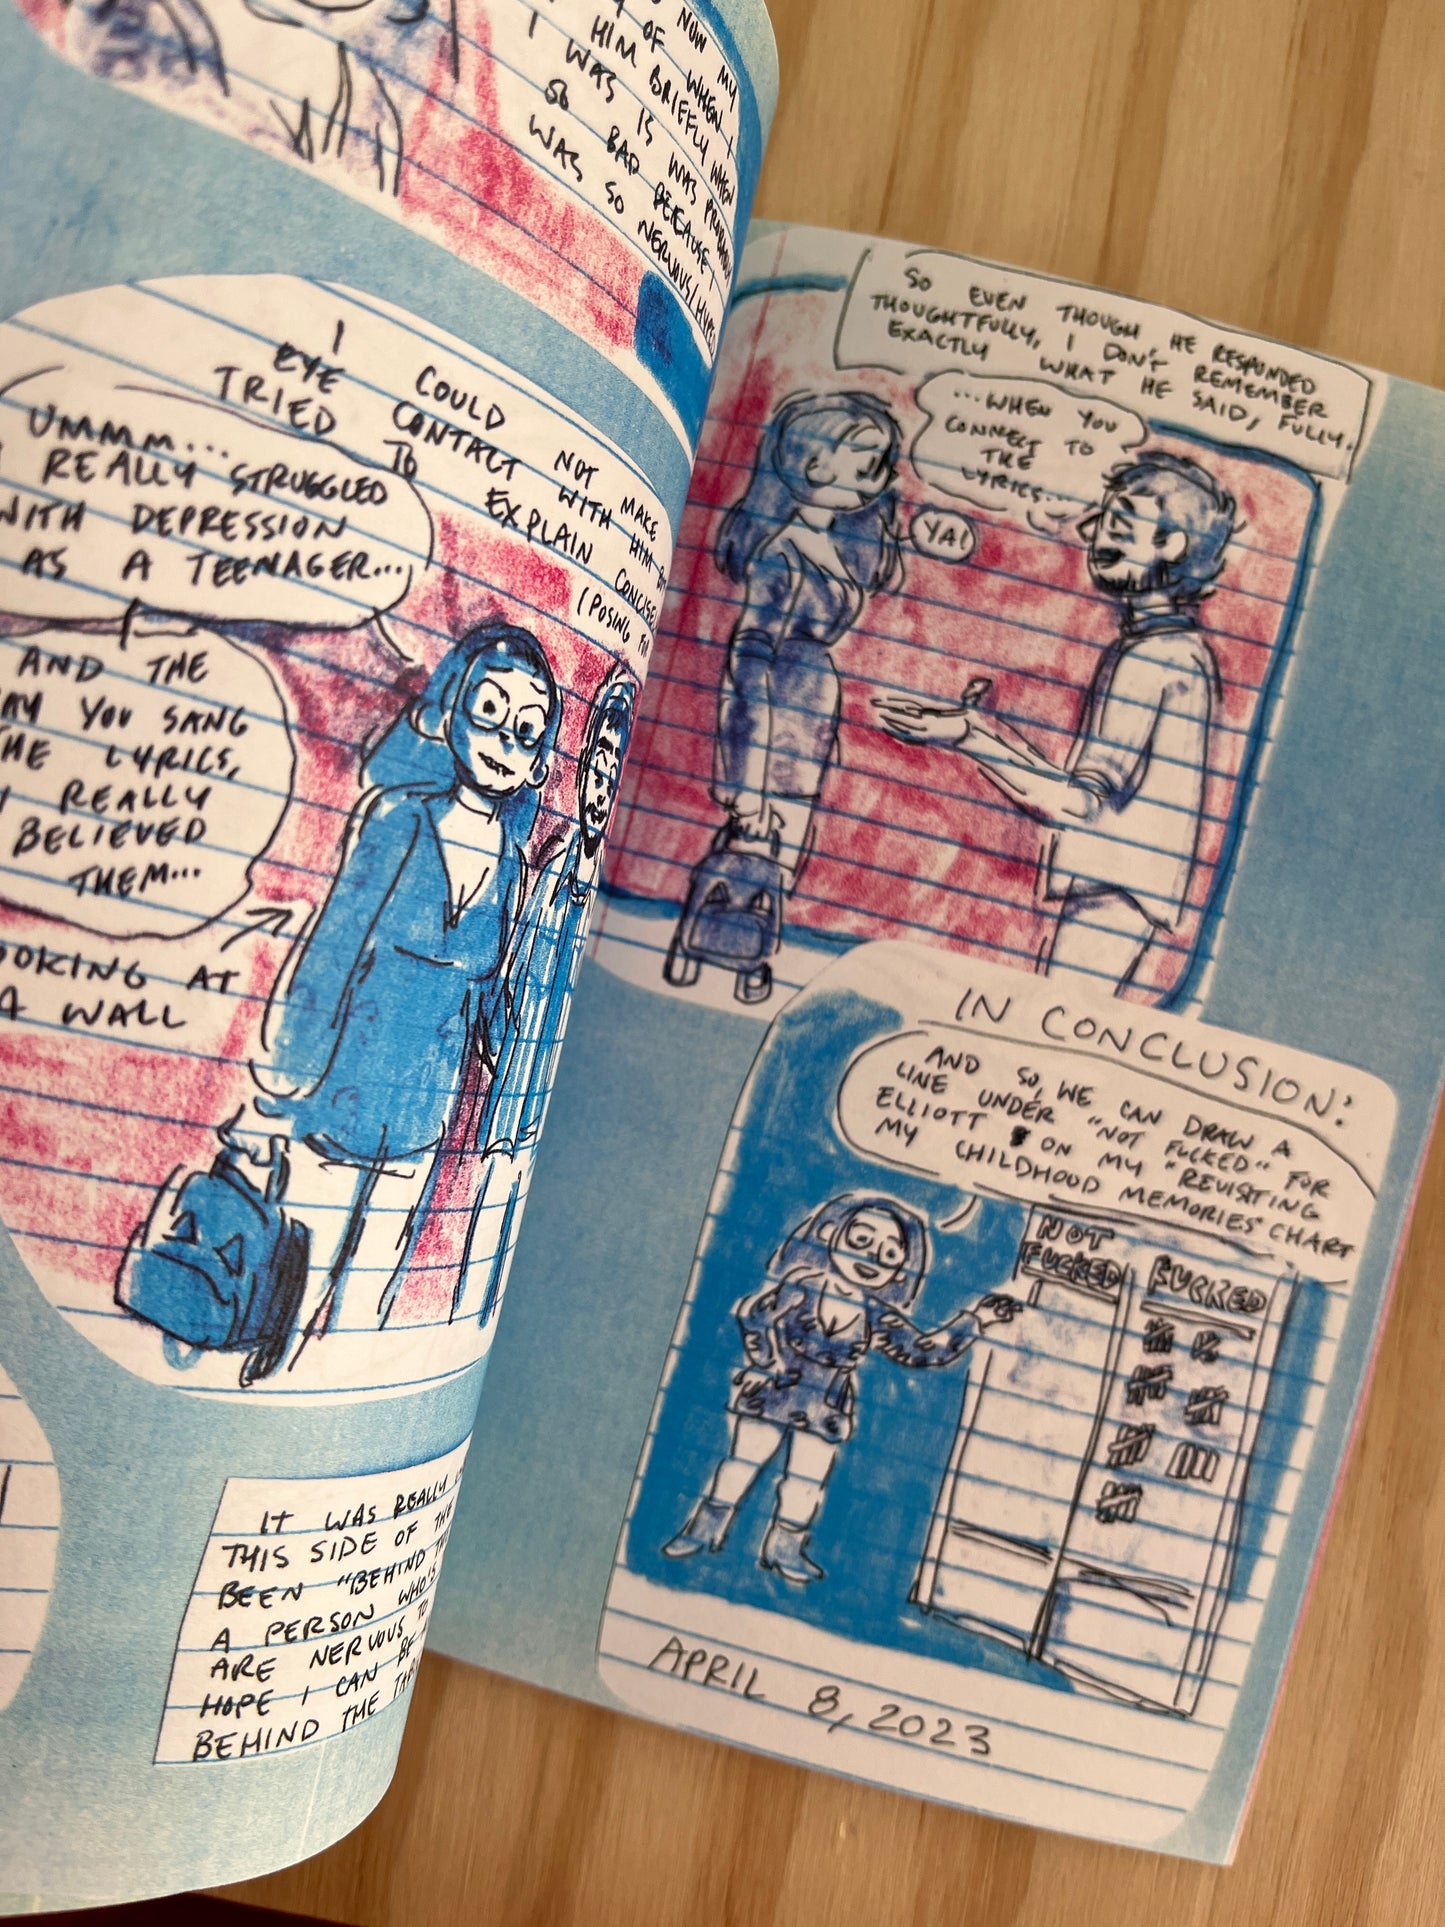 NOW MY
OF WHEN I
HIM BRIEFLY WHEN
I WAS 13 WAS
SO BAD BECAUSE I
WAS SO NERVOUS/
I COULD NOT MAKE
EYE CONTACT WITH HIM
TRIED TO EXPLAIN
(POSING
UMMM...
REALLY STRUGGLED
WITH DEPRESSION
AS A TEENAGER...
AND THE
YOU SANG
LYRICS,
I REALLY
BELIEVED
THEM...
AT
A WALL
IT WAS REALLY
THIS SIDE OF
BEEN "BEHIND
A PERSON WHO'S
ARE NERVOUS TO
HOPE I CAN BE
BEHIND THE
SO EVEN THOUGH HE RESPONDED
THOUGHTFULLY, I DON'T REMEMBER
EXACTLY WHAT HE SAID, FULLY.
...WHEN YOU
CONNECT TO
THE
LYRICS...
YA!
IN CONCLUSION:
AND SO, WE CAN DRAW A
LINE UNDER "NOT FUCKED" FOR
ELLIOTT ON MY "REVISITING
MY CHILDHOOD MEMORIES" CHART
NOT
FUCKED
FUCKED
APRIL 8, 2023